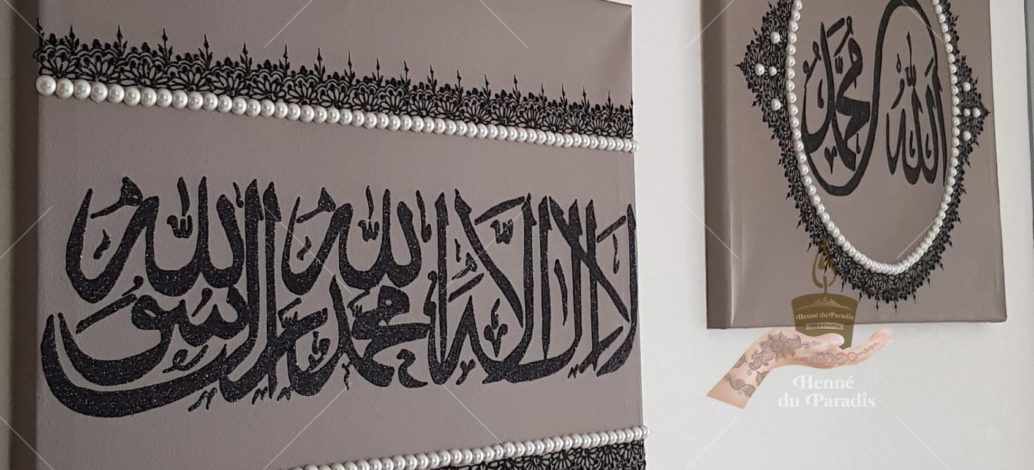 لا اله الا الله محمد رسول الله
الله
محمد
Henné du Paradis
Henné
du Paradis